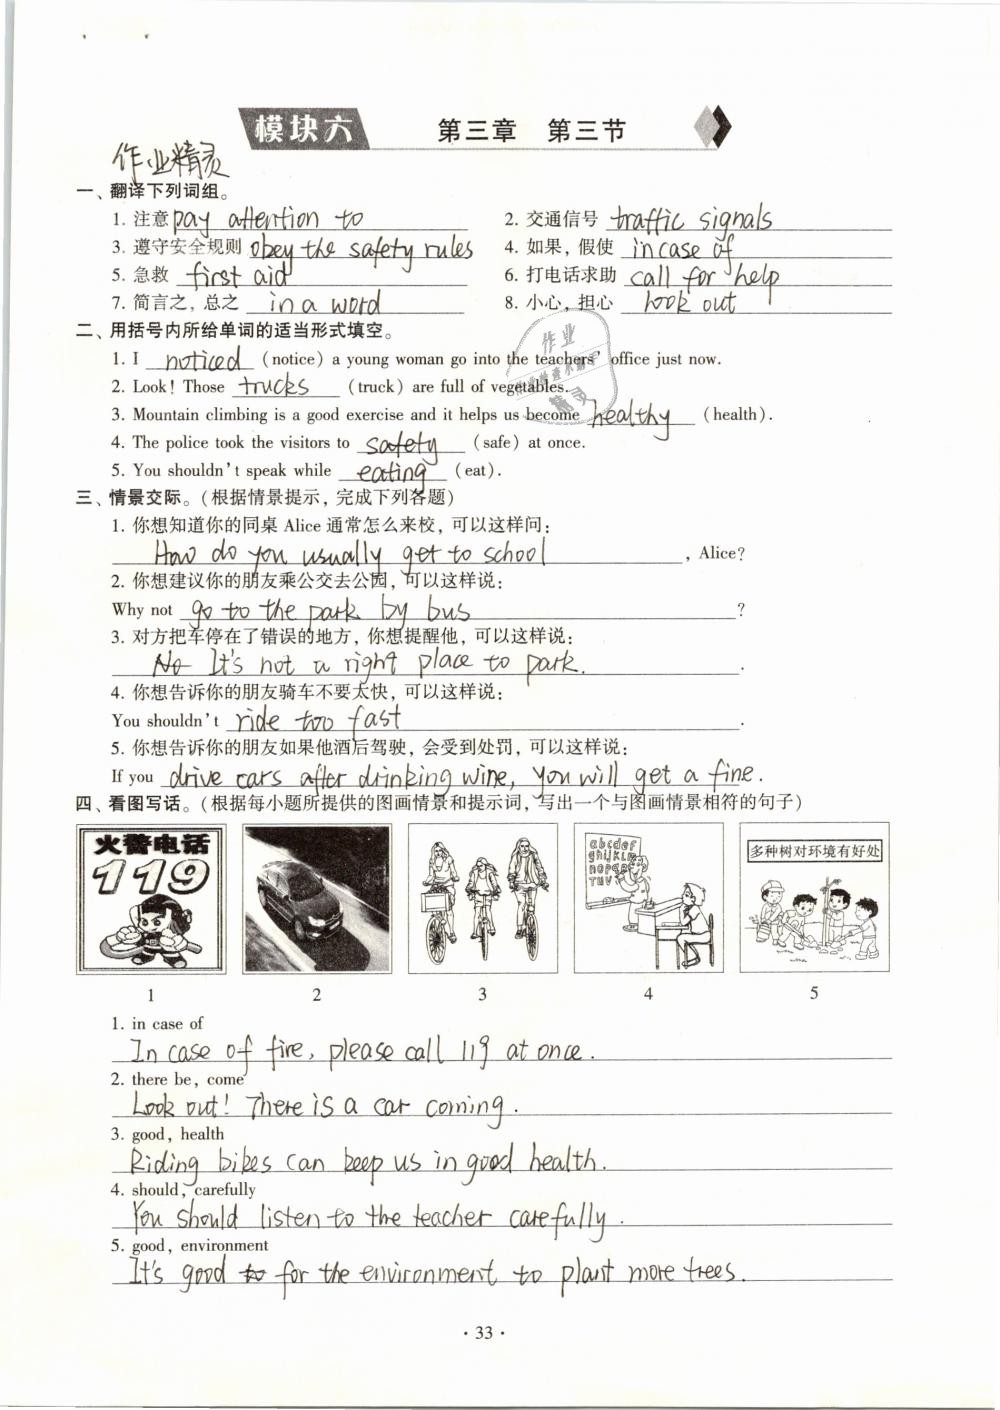 模块六 第三章 第三节
作业精灵
一、翻译下列词组。
1. 注意 pay attention to 2. 交通信号 traffic signals
3. 遵守安全规则 obey the safety rules 4. 如果，假使 in case of
5. 急救 first aid 6. 打电话求助 call for help
7. 简言之，总之 in a word 8. 小心，担心 look out
二、用括号内所给单词的适当形式填空。
1. I noticed (notice) a young woman go into the teachers' office just now.
2. Look! Those trucks (truck) are full of vegetables.
3. Mountain climbing is a good exercise and it helps us become healthy (health).
4. The police took the visitors to safety (safe) at once.
5. You shouldn't speak while eating (eat).
三、情景交际。(根据情景提示，完成下列各题)
1. 你想知道你的同桌 Alice 通常怎么来校，可以这样问：
How do you usually get to school, Alice?
2. 你想建议你的朋友乘公交去公园，可以这样说：
Why not go to the park by bus?
3. 对方把车停在了错误的地方，你想提醒他，可以这样说：
No It's not a right place to park.
4. 你想告诉你的朋友骑车不要太快，可以这样说：
You shouldn't ride too fast.
5. 你想告诉你的朋友如果他酒后驾驶，会受到处罚，可以这样说：
If you drive cars after drinking wine, you will get a fine.
四、看图写话。(根据每小题所提供的图画情景和提示词，写出一个与图画情景相符的句子)
火警电话
119
abcdef
ghijklm
nopq
多种树对环境有好处
1 2 3 4 5
1. in case of
In case of fire, please call 119 at once.
2. there be, come
Look out! There is a car coming.
3. good, health
Riding bikes can keep us in good health.
4. should, carefully
You should listen to the teacher carefully.
5. good, environment
It's good to for the environment to plant more trees.
· 33 ·
作业
精灵